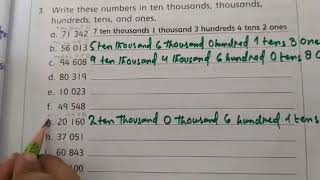 3. Write these numbers in ten thousands, thousands,
hundreds, tens, and ones.
a. 71 342 7 ten thousands 1 thousand 3 hundreds 4 tens 2 ones
b. 56 013 5 ten thousand 6 thousand 0 hundred 1 tens 3 one
c. 94 608 9 ten thousand 4 thousand 6 hundred 0 tens 8
d. 80 319
e. 10 023
f. 49 548
g. 20 160 2 ten thousand 0 thousand 1 hundred 6 tens
h. 37 051
60 843
100